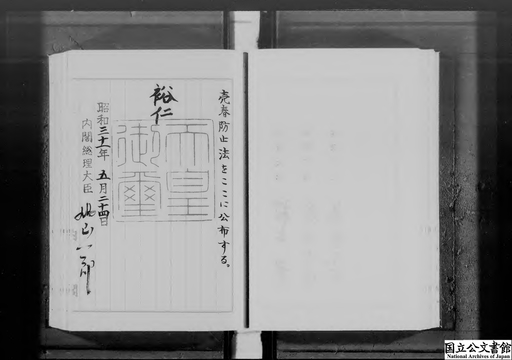 売春防止法をここに公布する。
裕仁
天皇御璽
昭和三十一年五月二十四日
内閣総理大臣 鳩山一郎
国立公文書館
National Archives of Japan